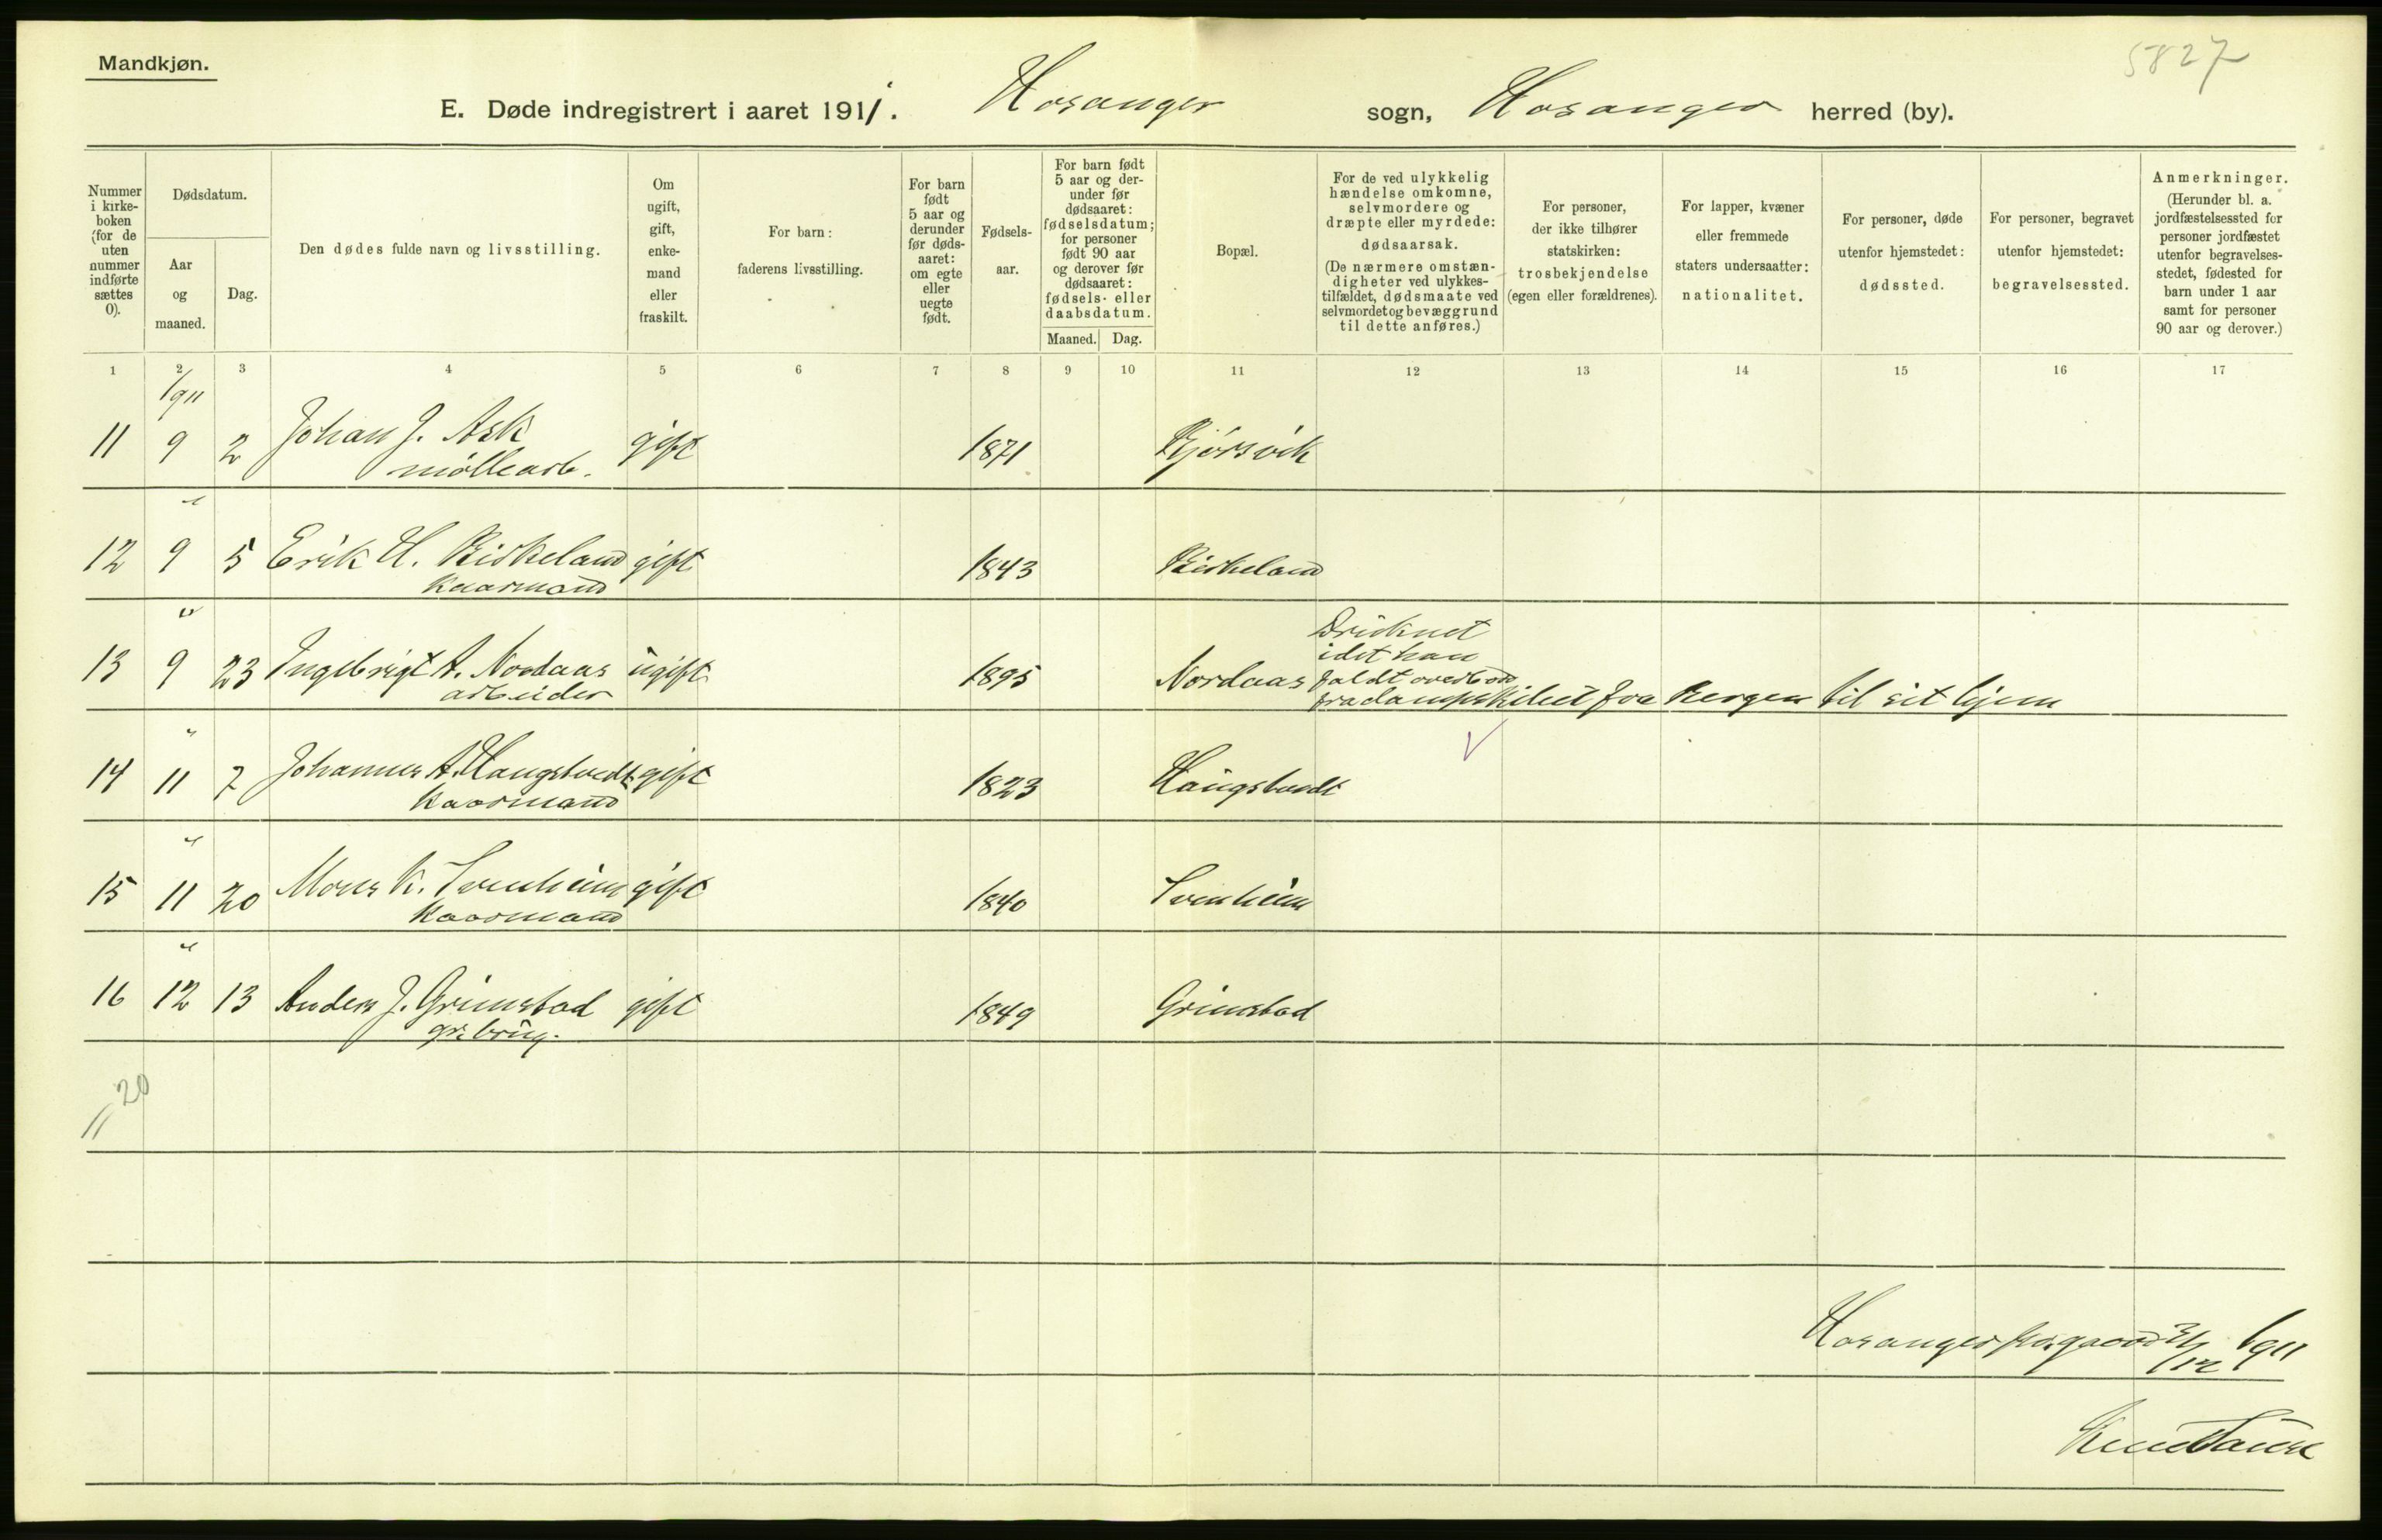 Mandkjøn.
5827
E. Døde indregistrert i aaret 1911. Hosanger sogn, Hosanger herred (by).
Nummer i kirke-boken (for de uten nummer indførte sættes 0).
Dødsdatum.
Aar og maaned.
Dag.
Den dødes fulde navn og livsstilling.
Om ugift, gift, enke-mand eller fraskilt.
For barn: faderens livsstilling.
For barn født 5 aar og derunder før døds-aaret: om egte eller uegte født.
Fødsels-aar.
For barn født 5 aar og der-under før dødsaaret: fødselsdatum; for personer født 90 aar og derover før dødsaaret: fødsels- eller daabsdatum.
Maaned. Dag.
Bopæl.
For de ved ulykkelig hændelse omkomne, selvmordere og dræpte eller myrdede: dødsaarsak. (De nærmere omstæn-digheter ved ulykkes-tilfældet, dødsmaate ved selvmordet og bevæggrund til dette anføres.)
For personer, der ikke tilhører statskirken: trosbekjendelse (egen eller forældrenes).
For lapper, kvæner eller fremmede staters undersaatter: nationalitet.
For personer, døde utenfor hjemstedet: dødssted.
For personer, begravet utenfor hjemstedet: begravelsessted.
Anmerkninger. (Herunder bl. a. jordfæstelsessted for personer jordfæstet utenfor begravelses-stedet, fødested for barn under 1 aar samt for personer 90 aar og derover.)
1 2 3 4 5 6 7 8 9 10 11 12 13 14 15 16 17
1911
11 9 2 Johan J. Ask gift 1871 Bjørsvik
møllearb.
"
12 9 5 Erik H. Birkeland gift 1843 Birkeland
Kaarmand
"
13 9 23 Ingebrigt A. Nordaas ugift 1895 Nordaas
arbeider
Druknet
idet han
faldt overbord
fra dampskibet fra Bergen til sit hjem
"
14 11 7 Johannes A. Haugstvedt gift 1823 Haugstvedt
Kaarmand
"
15 11 20 Mons K. Svenheim gift 1840 Svenheim
Kaarmand
"
16 12 13 Anders J. Grimstad gift 1849 Grimstad
gr.brug.
20
Hosanger 1911